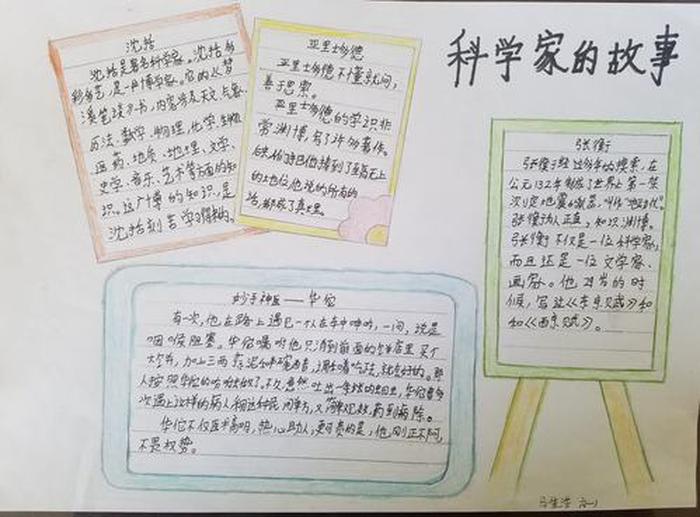 科学家的故事
沈括
沈括是著名科学家。沈括多
才多艺,是一户博学家。它的《梦
溪笔谈》一书,内容涉及天文、气象、
历法、数学、物理、化学、生物
医药、地质、地理、文学、
史学、音乐、艺术等方面的知
识。这广博的知识,是
沈括刻苦学习得来的。
亚里士多德
亚里士多德不懂就问,
善于思索。
亚里士多德的学识非
常渊博,写了许多著作。
后来他被捧到了至高无上
的地位,他说的所有的
话,都成了真理。
张衡
张衡经过多年的摸索,在
公元132年制成了世界上第一架
测定地震的仪器,叫作"地动仪"。
张衡为人正直,知识渊博。
张衡不仅是一位科学家,
而且还是一位文学家、
画家。他29岁的时
候,写过《东京赋》和
和《西京赋》。
妙手神医——华佗
有一次,他在路上遇见一个人在车中呻吟,一问,说是
咽喉阻塞。华佗嘱咐他只消到前面的店里买个
大,加上三两蒜泥,调着吃法,就会好的。那
人按照华佗的吩咐做了。不久,忽然吐出一条虫,华佗曾多
次遇上这样的病人,用这种民间单方,又简单见效,药到病除。
华佗不仅医术高明,热心助人,更可贵的是,他刚正不阿,
不畏权势。